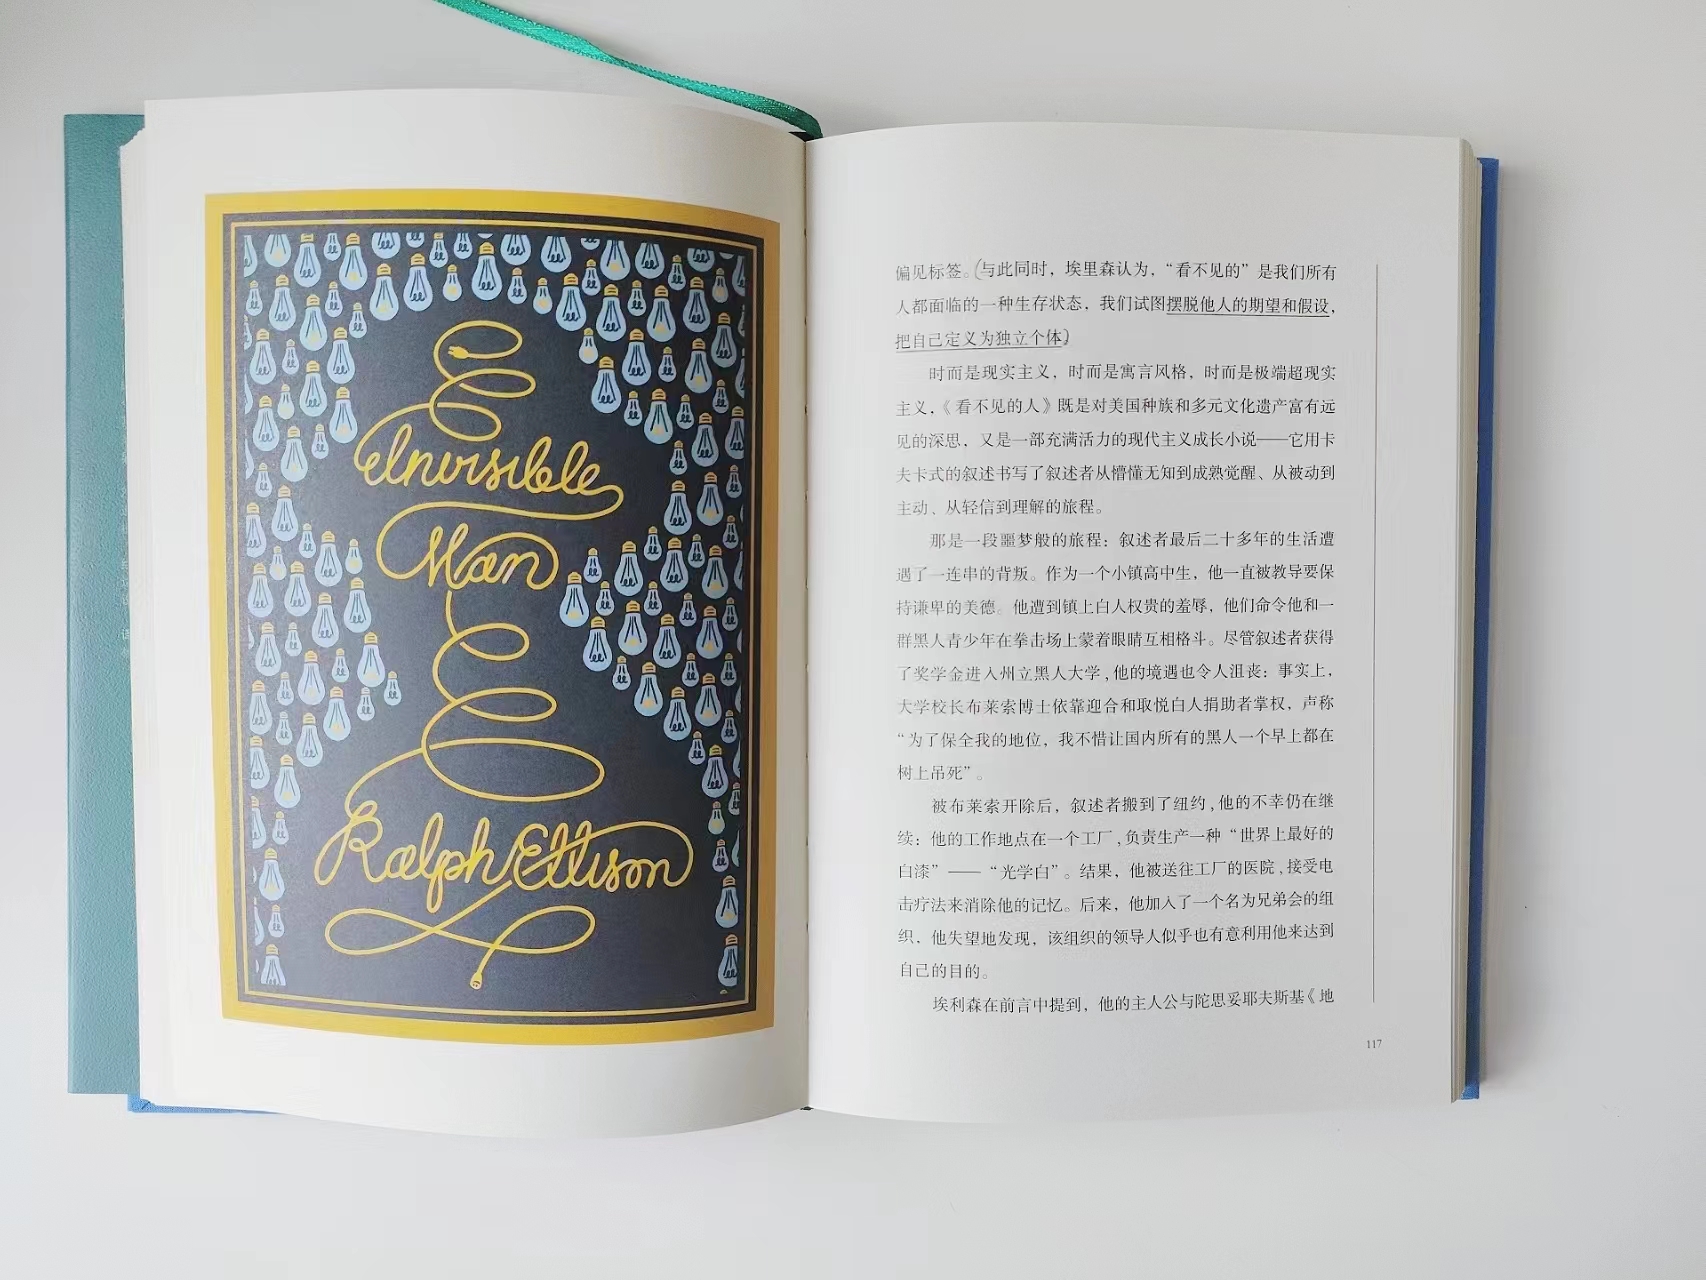 Invisible
Man
Ralph Ellison
偏见标签。(与此同时，埃里森认为，“看不见的”是我们所有
人都面临的一种生存状态，我们试图摆脱他人的期望和假设，
把自己定义为独立个体)
时而是现实主义，时而是寓言风格，时而是极端超现实
主义，《看不见的人》既是对美国种族和多元文化遗产富有远
见的深思，又是一部充满活力的现代主义成长小说——它用卡
夫卡式的叙述书写了叙述者从懵懂无知到成熟觉醒、从被动到
主动、从轻信到理解的旅程。
那是一段噩梦般的旅程：叙述者最后二十多年的生活遭
遇了一连串的背叛。作为一个小镇高中生，他一直被教导要保
持谦卑的美德。他遭到镇上白人权贵的羞辱，他们命令他和一
群黑人青少年在拳击场上蒙着眼睛互相格斗。尽管叙述者获得
了奖学金进入州立黑人大学，他的境遇也令人沮丧：事实上，
大学校长布莱索博士依靠迎合和取悦白人捐助者掌权，声称
“为了保全我的地位，我不惜让国内所有的黑人一个早上都在
树上吊死”。
被布莱索开除后，叙述者搬到了纽约，他的不幸仍在继
续：他的工作地点在一个工厂，负责生产一种“世界上最好的
白漆”——“光学白”。结果，他被送往工厂的医院，接受电
击疗法来消除他的记忆。后来，他加入了一个名为兄弟会的组
织，他失望地发现，该组织的领导人似乎也有意利用他来达到
自己的目的。
埃利森在前言中提到，他的主人公与陀思妥耶夫斯基《地
117